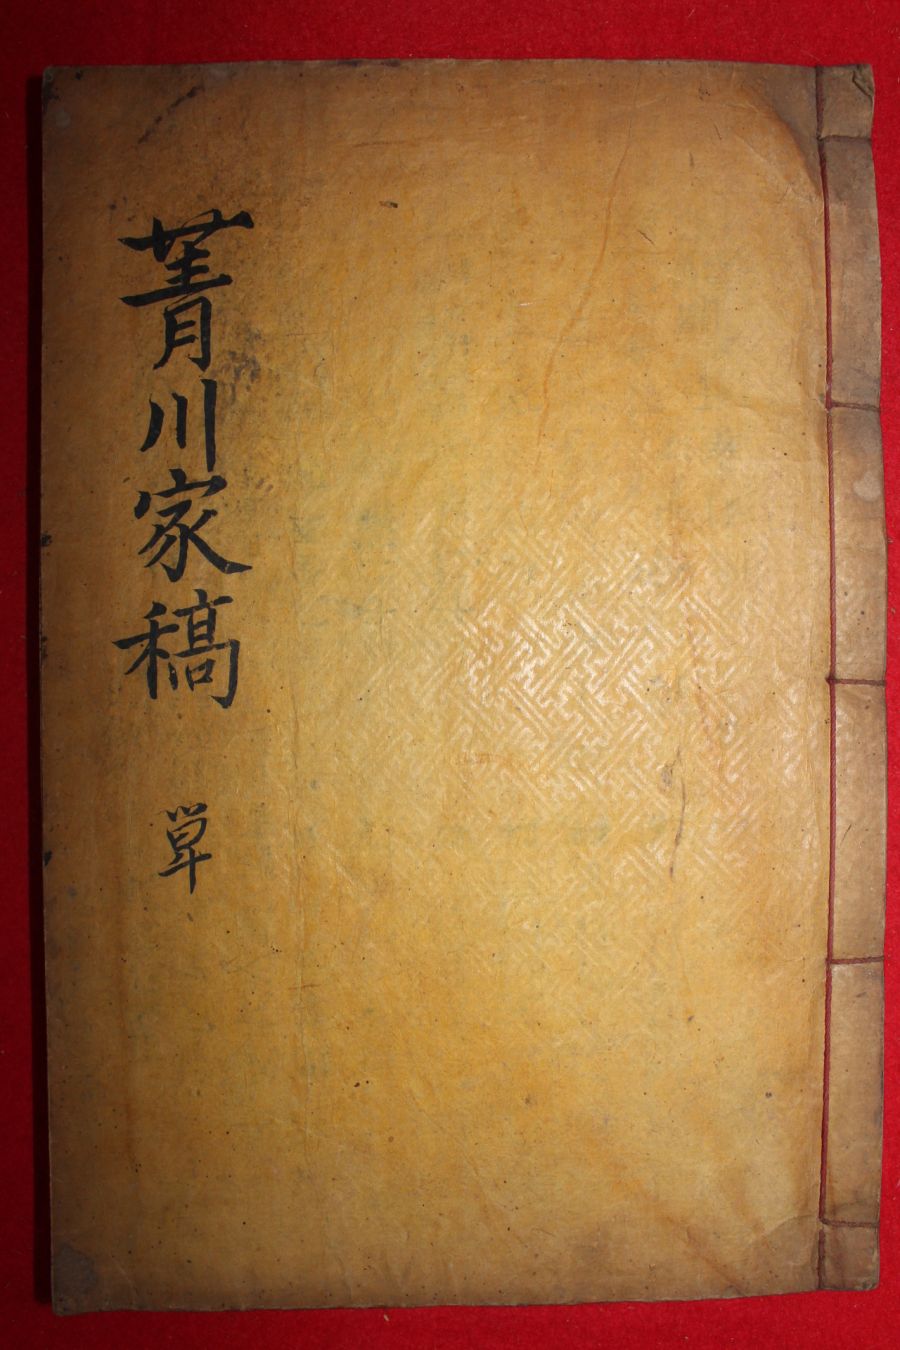 菁川家稿
単